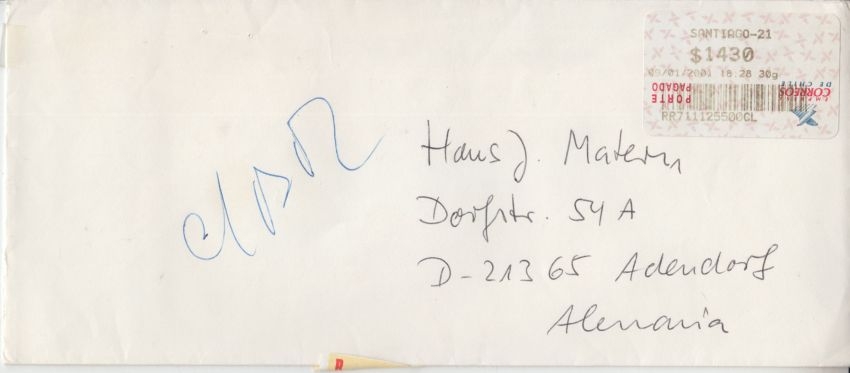 SANTIAGO-21
$1430
09/01/2001 18:28 30g
PORTE PAGADO
CORREOS DE CHILE
RR711125500CL
Hans J. Matern
Dorfstr. 54 A
D-21365 Adendorf
Alemania
R